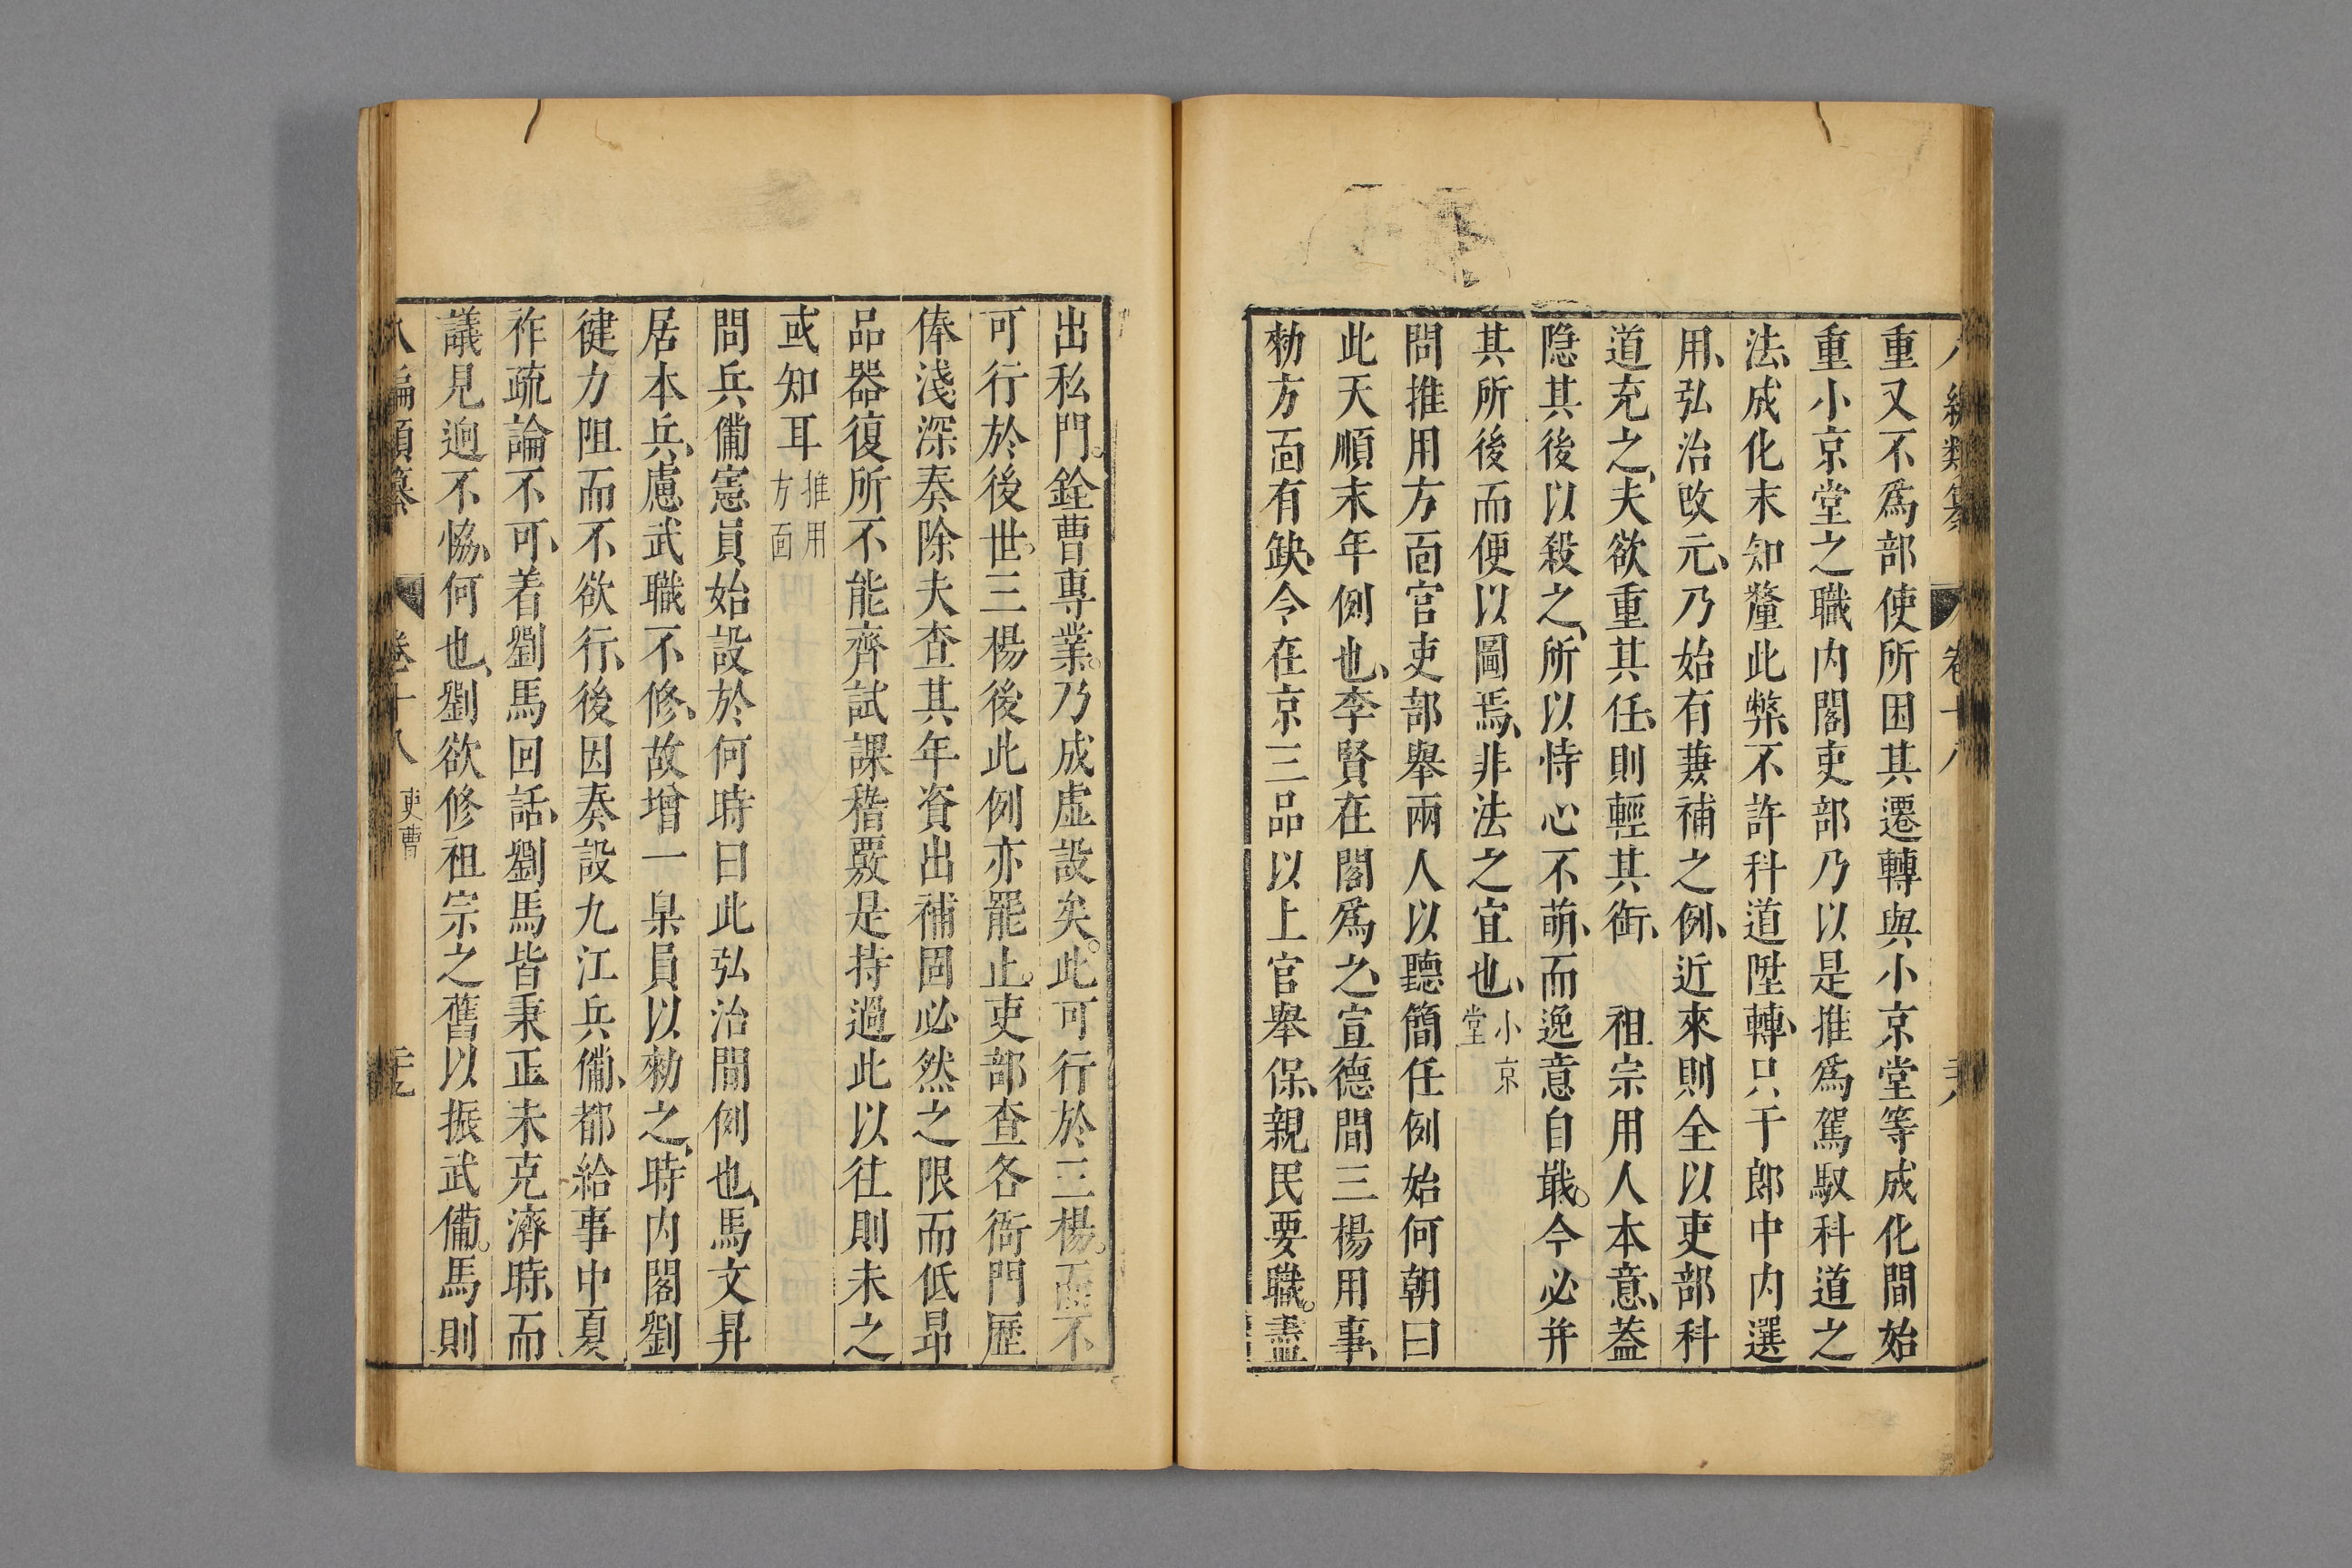 重又不爲部使所困其遷轉與小京堂等成化間始
重小京堂之職内閣吏部乃以是推爲駕馭科道之
法、成化末知釐此弊、不許科道陞轉、只于郎中内選
用、弘治改元、乃始有兼補之例、近來則全以吏部科
道充之、夫欲重其任、則輕其銜、 祖宗用人本意、葢
隐其後以殺之、所以恃心不萌、而逸意自戢。今必并
其所後而便以圖焉、非法之宜也、小京堂
問推用方面官吏部舉兩人以聽簡任例始何朝曰
此天順末年例也、李賢在閣爲之、宣德間三楊用事、
勑方面有缺、令在京三品以上官舉保、親民要職。盡
出私門。銓曹專業。乃成虚設矣。此可行於三楊。而不
可行於後世。三楊後此例亦罷止。吏部查各衙門歷
俸淺深奏除夫查其年資出補固必然之限而低昂
品器復所不能齊試課稽覈是持過此以往則未之
或知耳推用方面
問兵備憲員始設於何時曰此弘治間例也、馬文昇
居本兵、慮武職不修、故增一臬員以勑之、時内閣劉
健力阻而不欲行、後因奏設九江兵備、都給事中夏
祚疏論不可、着劉馬回話、劉馬皆秉正未克濟時、而
議見逈不恊、何也、劉欲修祖宗之舊以振武備。馬則
編類纂 卷十八 吏曹